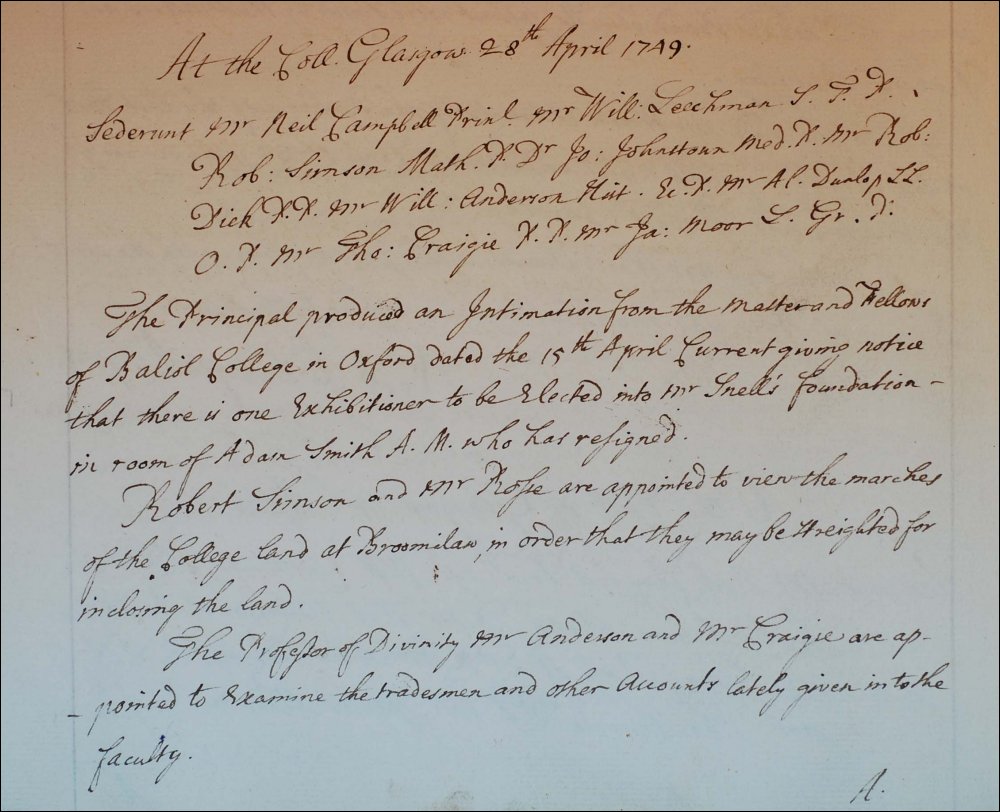 At the Coll. Glasgow 28th April 1749.
Sederunt Mr Neil Campbell Prinl. Mr Will: Leechman S. T. P.
Rob: Simson Math. P. Dr Jo: Johnstoun Med. P. Mr Rob:
Dick P. P. Mr Will: Anderson Hist. Ec. P. Mr Al. Dunlop LL.
O. P. Mr Tho: Craigie P. P. Mr Ja: Moor L. Gr. P.
The Principal produced an Intimation from the Master and Fellows
of Baliol College in Oxford dated the 15th April Current giving notice
that there is one Exhibitioner to be Elected into Mr Snells foundation -
in room of Adam Smith A. M. who has resigned.
Robert Simson and Mr Rosse are appointed to view the marches
of the College land at Broomilaw, in order that they may be streighted for
inclosing the land.
The Professor of Divinity Mr Anderson and Mr Craigie are ap-
- pointed to Examine the tradesmen and other Accounts lately given in to the
faculty.
A.